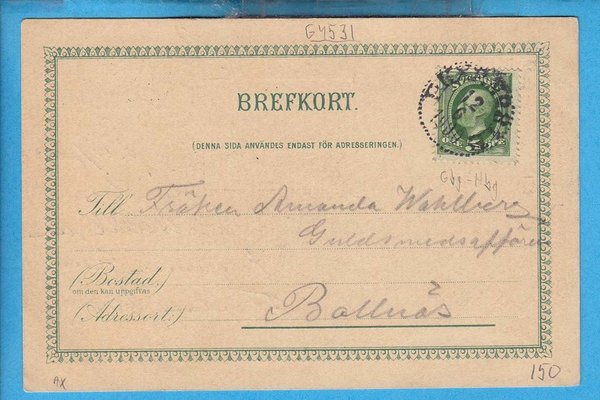 G4531
SVERIGE
12
BREFKORT.
(DENNA SIDA ANVÄNDES ENDAST FÖR ADRESSERINGEN.)
Gbg-Hbg
Till Fröken Amanda Wahlberg
Guldsmedsaffären
(Bostad.)
om den kan uppgifvas
(Adressort.) Bollnäs
AX
150